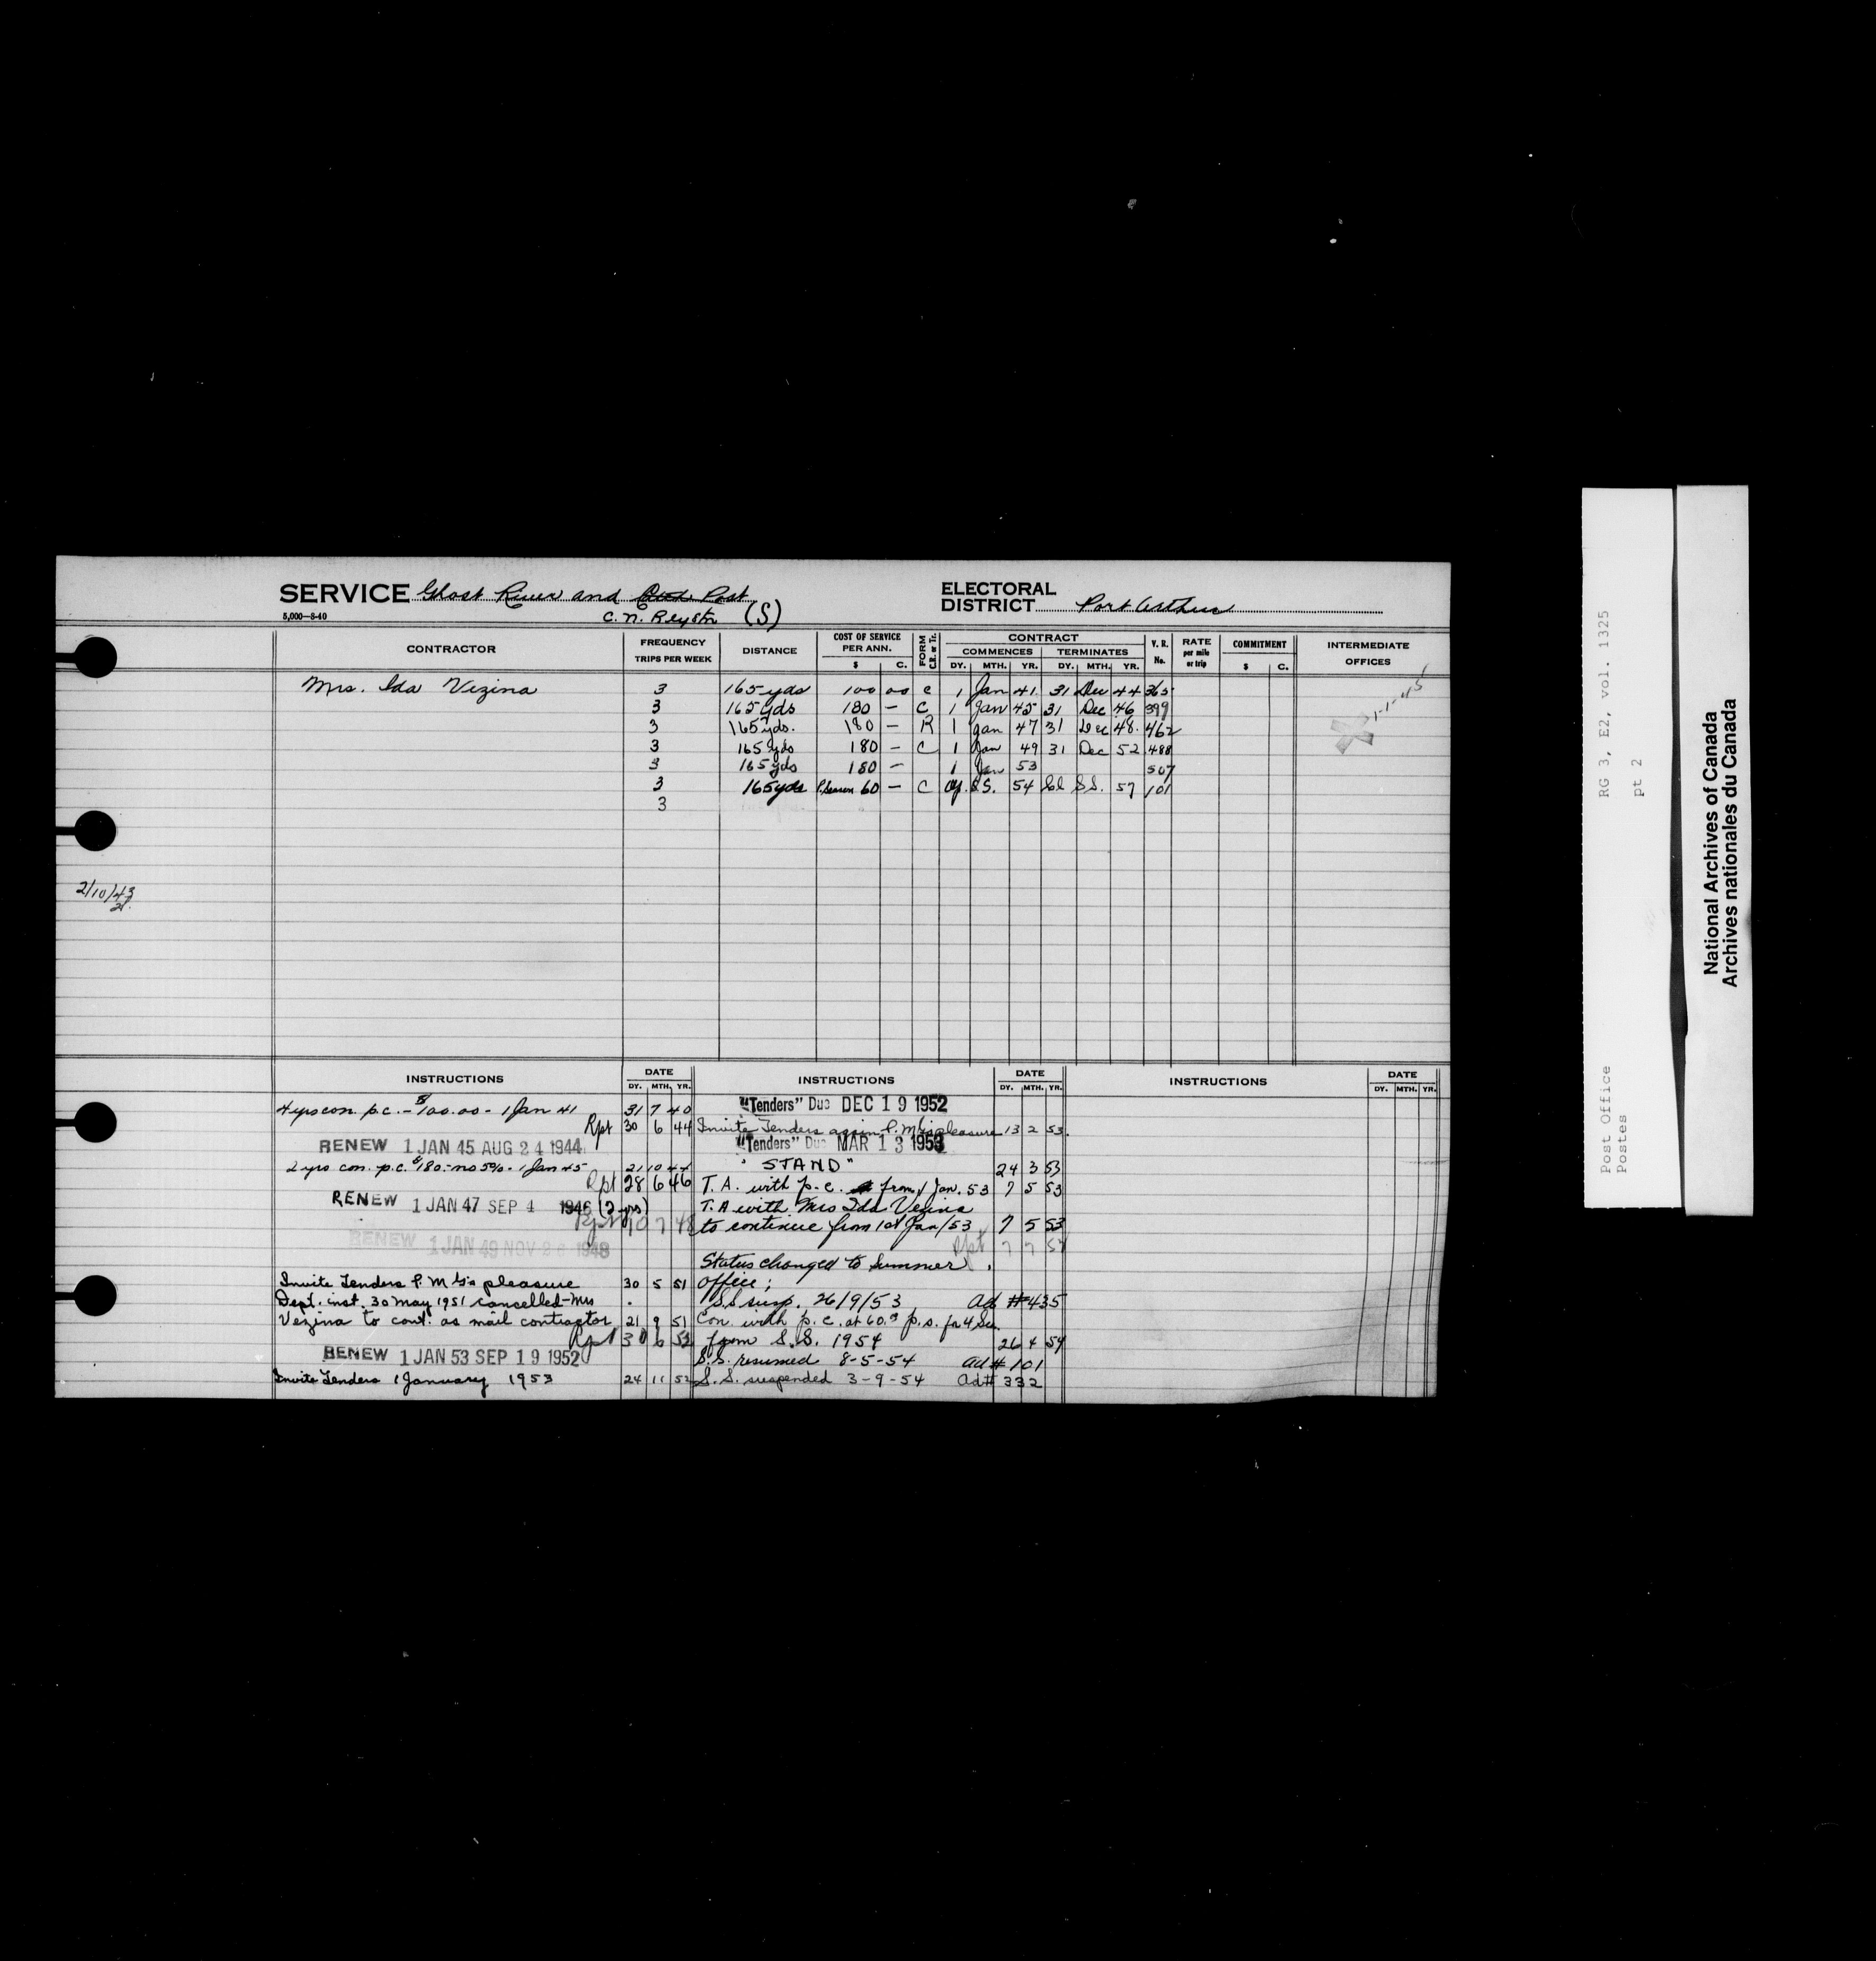 SERVICE Ghost River and Post
ELECTORAL DISTRICT Port Arthur
5,000—8-40
C. N. Ry Stn (S)
CONTRACTOR FREQUENCY TRIPS PER WEEK DISTANCE COST OF SERVICE PER ANN. $ C. FORM C.R. or Tr. CONTRACT COMMENCES DY. MTH. YR. TERMINATES DY. MTH. YR. V. R. No. RATE per mile or trip COMMITMENT $ C. INTERMEDIATE OFFICES
Mrs. Ida Vezina 3 165 yds 100 00 C 1 Jan 41 31 Dec 44 365
3 165 yds 180 — C 1 Jan 45 31 Dec 46 399
1-1-45
3 165 yds. 180 — R 1 Jan 47 31 Dec 48 462
3 165 yds 180 — C 1 Jan 49 31 Dec 52 488
3 165 yds 180 — 1 Jan 53 507
3 165 yds P. Season 60 — C Op. S.S. 54 Cl S.S. 57 101
3
2/10/43
INSTRUCTIONS DATE DY. MTH. YR. INSTRUCTIONS DATE DY. MTH. YR. INSTRUCTIONS DATE DY. MTH. YR.
4 yrs con. p.c. – $100.00 – 1 Jan 41 31 7 40
Rpt 30 6 44
RENEW 1 JAN 45 AUG 24 1944
2 yrs con. p.c. $180.– no 5% – 1 Jan 45 21 10 44
Rpt 28 6 46
RENEW 1 JAN 47 SEP 4 1946 (2 yrs)
Rpt 10 7 48
RENEW 1 JAN 49 NOV 26 1948
Invite Tenders P. M G's pleasure 30 5 51
Dept. inst. 30 May 1951 cancelled – Mrs
Vezina to cont. as mail contractor 21 9 51
Rpt 30 6 52
RENEW 1 JAN 53 SEP 19 1952
Invite Tenders 1 January 1953 24 11 52
"Tenders" Due DEC 19 1952
Invite Tenders again P. M G's pleasure 13 2 53.
"Tenders" Due MAR 13 1953
"STAND" 24 3 53
T. A. with p.c. from 1 Jan. 53 7 5 53
T. A with Mrs Ida Vezina
to continue from 1st Jan/53 7 5 53
Rpt 7 7 57
Status changed to Summer
office;
S.S susp. 26/9/53 Ad #435
Con. with p.c. at 60.00 p.s. for 4 Sea.
from S.S. 1954 26 4 54
S.S. resumed 8-5-54 Ad #101
S. S. suspended 3-9-54 Ad# 332
RG 3, E2, vol. 1325
pt 2
Post Office
Postes
National Archives of Canada
Archives nationales du Canada